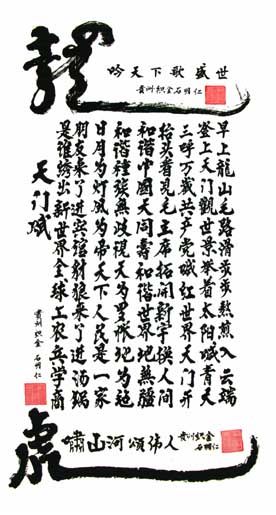 龍
吟天下歌盛世
贵州织金石明仁
早上龍山毛路滑茨茨熬煎入云端
登上天门觀世景举首太阳喊青天
三呼万载共产党喊红世界天门开
抬头看見毛主席拓開新宇換人间
和谐中國天同壽和谐世界地無疆
和谐種族無歧視天为罗帐地为毯
日月为灯風为帝天下人民是一家
朋友来了進宾馆豺狼来了进汤锅
是谁绣出新世界全球工农兵学商
天门赋
贵州织金石明仁
虎
嘯山河頌伟人
贵州织金石明仁